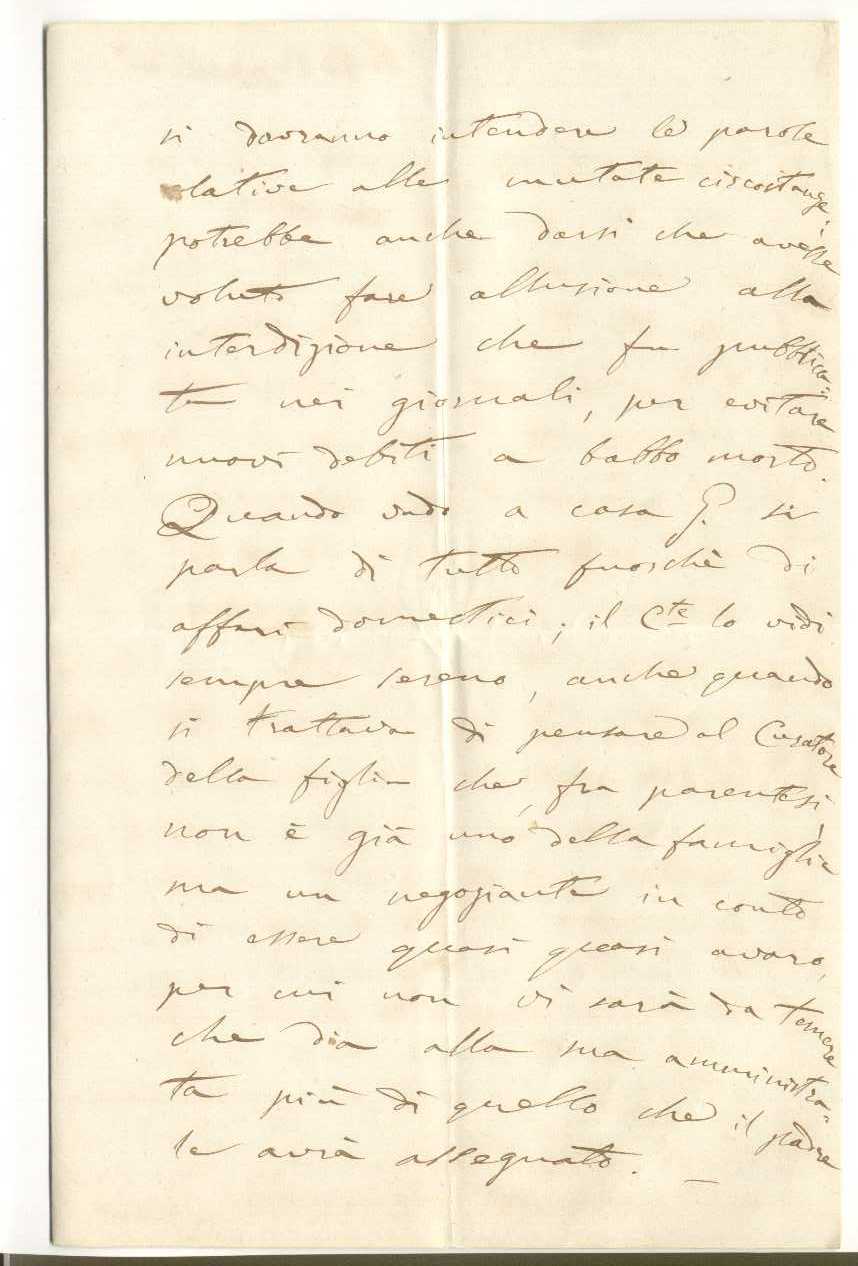 si dovranno intendere le parole
relative alle mutate circostanze;
potrebbe anche darsi che avesse
voluto fare allusione alla
interdizione che fu pubblica=
ta nei giornali, per evitare
nuovi debiti a babbo morto.
Quando vado a casa G. si
parla di tutto fuorchè di
affari domestici; il Cte lo vidi
sempre sereno, anche quando
si trattava di pensare al Curatore
della figlia che, fra parentesi,
non è già uno della famiglia
ma un negoziante in conto
di essere quasi quasi avaro,
per cui non vi sarà da temere
che dia alla sua amministra=
ta più di quello che il padre
le avrà assegnato. —